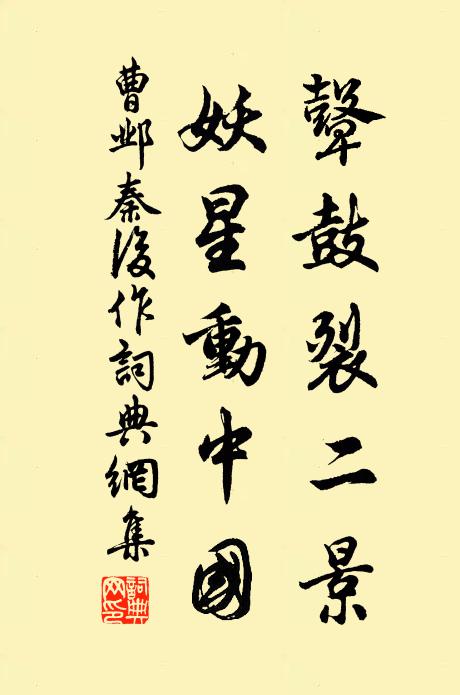 鼙鼓裂二景
妖星動中國
曹邺秦後作詞典網集
詞典
网印